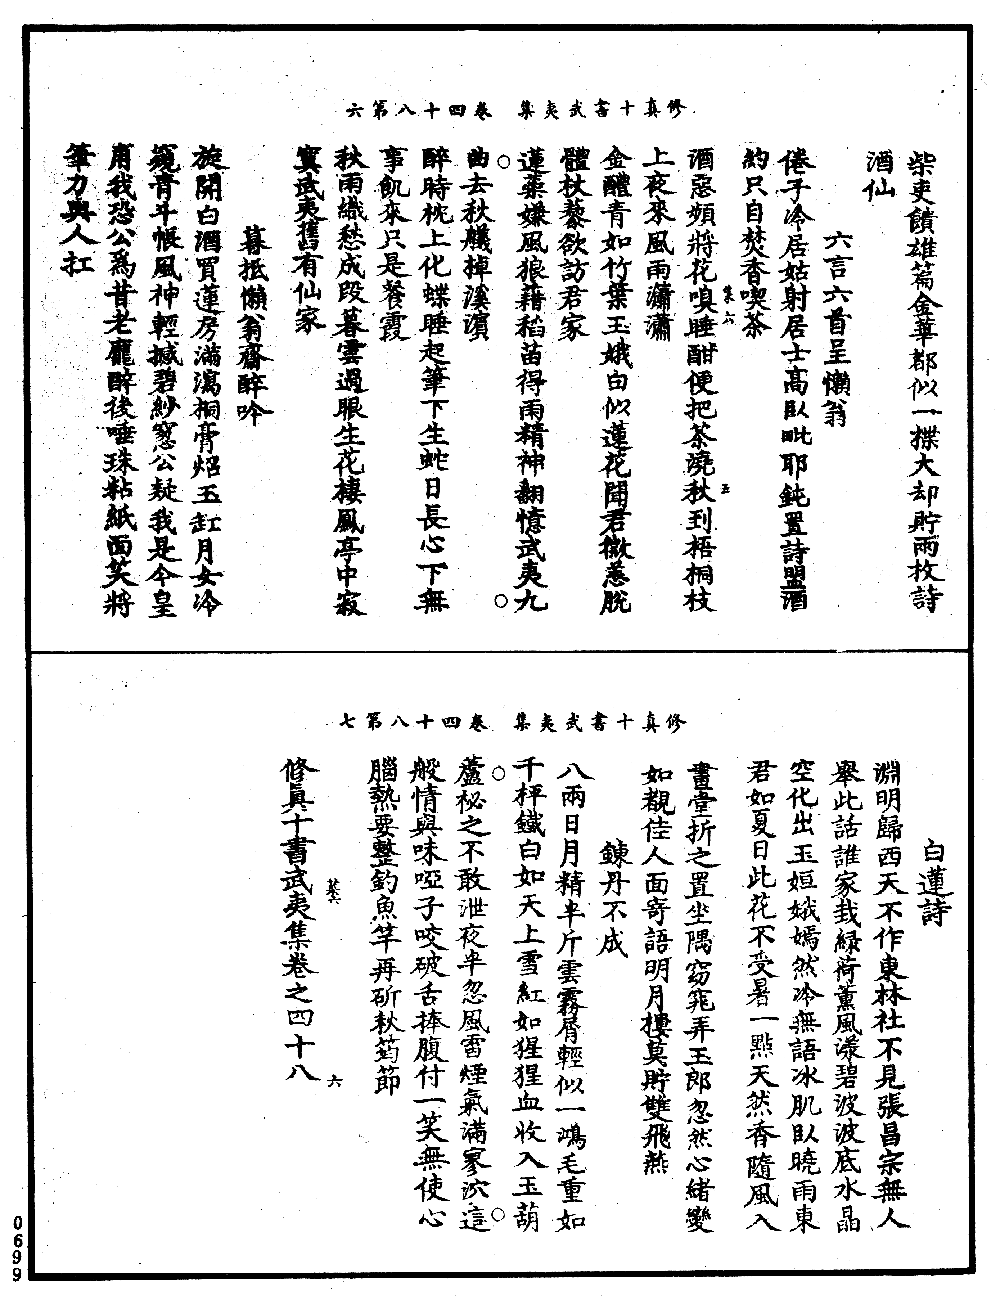 修真十書武夷集　卷四十八第六
柴吏饋雄篇金華都似一擛大却貯兩枚詩
酒仙
六言六首呈懶翁
倦子冷居姑射居士高臥毗耶鈍置詩盟酒
約只自焚香喫茶
酒惡頻將花嗅睡酣便把茶澆秋到梧桐枝
上夜來風雨瀟瀟
金醴青如竹葉玉娥白似蓮花聞君微恙脫
體杖藜欲訪君家
蓮蘂嫌風狼藉稻苗得雨精神翻憶武夷九
曲去秋艤掉溪濱
醉時枕上化蝶睡起筆下生蛇日長心下無
事飢來只是餐霞
秋雨織愁成段暮雲過眼生花棲鳳亭中寂
寞武夷舊有仙家
暮抵懶翁齋醉吟
旋開白酒買蓮房滿瀉桐膏炤玉缸月女冷
窺青斗帳風神輕撼碧紗窓公疑我是今皇
甫我恐公爲昔老龐醉後唾珠粘紙面笑將
筆力與人扛
修真十書武夷集　卷四十八第七
白蓮詩
淵明歸西天不作東林社不見張昌宗無人
舉此話誰家栽緑荷薰風漾碧波波底水晶
空化出玉姮娥嫣然冷無語冰肌臥曉雨東
君如夏日此花不受暑一點天然香隨風入
畫堂折之置坐隅窈窕弄玉郎忽然心緒變
如覩佳人面寄語明月樓莫貯雙飛燕
鍊丹不成
八兩日月精半斤雲霧屑輕似一鴻毛重如
千秤鐵白如天上雪紅如猩猩血收入玉葫
蘆祕之不敢泄夜半忽風雷煙氣滿寥泬這
般情與味啞子咬破舌捧腹付一笑無使心
腦熱要整釣魚竿再斫秋筠節
修真十書武夷集卷之四十八
0699